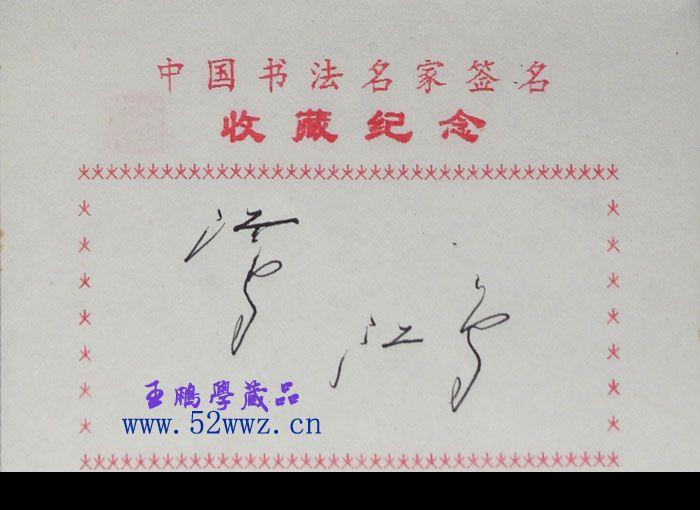 中国书法名家签名
收藏纪念
江鸟
王鵬學藏品
www.52wwz.cn